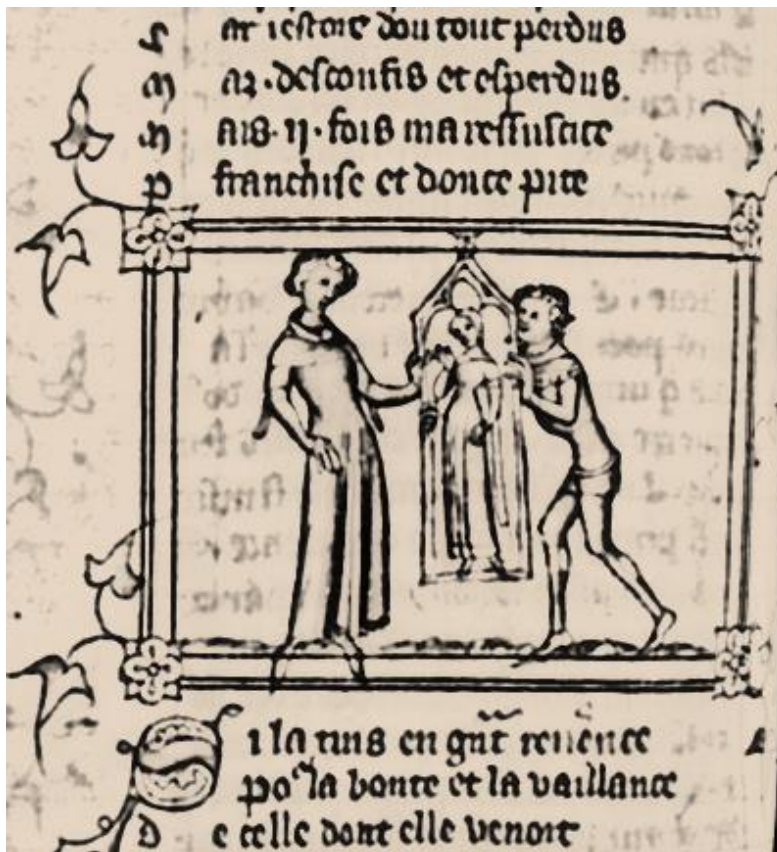 ar iestoie dou tout perdus
M at. desconfis et esperdus
M ais .ij. fois ma ressuscite
P franchise et douce pite
S i la tins en gnt reuerence
po la bonte et la vaillance
D e celle dont elle venoit